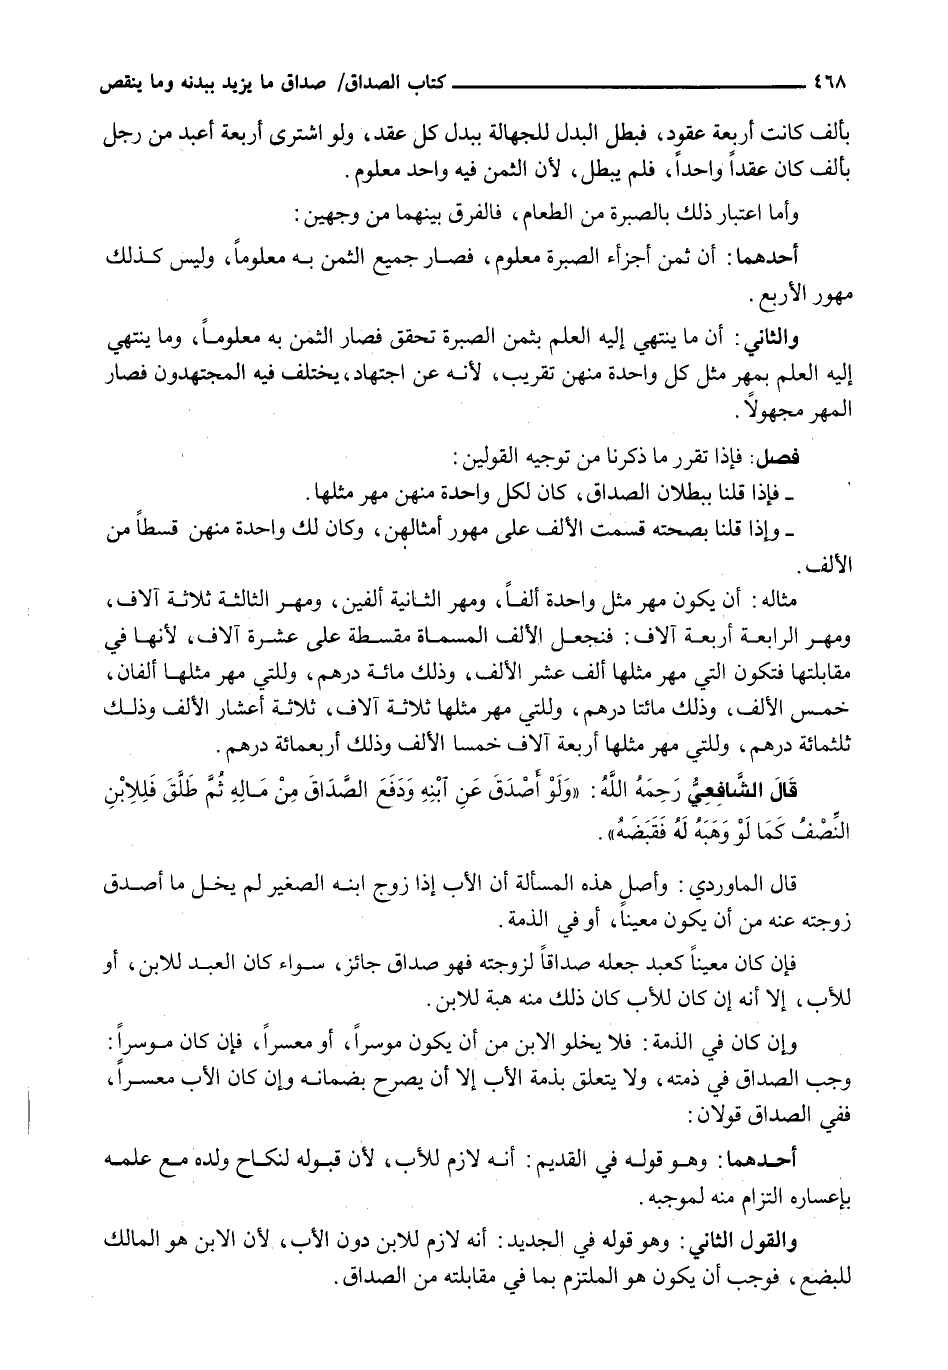 ٤٦٨ ــــــــــــــــــــــــــــــ كتاب الصداق/ صداق ما يزيد ببدنه وما ينقص
بألف كانت أربعة عقود، فبطل البدل للجهالة ببدل كل عقد، ولو اشترى أربعة أعبد من رجل
بألف كان عقداً واحداً، فلم يبطل، لأن الثمن فيه واحد معلوم.
وأما اعتبار ذلك بالصبرة من الطعام، فالفرق بينهما من وجهين:
أحدهما: أن ثمن أجزأء الصبرة معلوم، فصار جميع الثمن به معلوماً، وليس كذلك
مهور الأربع.
والثاني: أن ما ينتهي إليه العلم بثمن الصبرة تحقق فصار الثمن به معلوماً، وما ينتهي
إليه العلم بمهر مثل كل واحدة منهن تقريب، لأنه عن اجتهاد، يختلف فيه المجتهدون فصار
المهر مجهولاً.
فصل: فإذا تقرر ما ذكرنا من توجيه القولين:
ـ فإذا قلنا ببطلان الصداق، كان لكل واحدة منهن مهر مثلها.
ـ وإذا قلنا بصحته قسمت الألف على مهور أمثالهن، وكان لك واحدة منهن قسطاً من
الألف.
مثاله: أن يكون مهر مثل واحدة ألفاً، ومهر الثانية ألفين، ومهر الثالثة ثلاثة آلاف،
ومهر الرابعة أربعة آلاف: فنجعل الألف المسماة مقسطة على عشرة آلاف، لأنها في
مقابلتها فتكون التي مهر مثلها ألف عشر الألف، وذلك مائة درهم، وللتي مهر مثلها ألفان،
خمس الألف، وذلك مائتا درهم، وللتي مهر مثلها ثلاثة آلاف، ثلاثة أعشار الألف وذلك
ثلثمائة درهم، وللتي مهر مثلها أربعة آلاف خمسا الألف وذلك أربعمائة درهم.
قَالَ الشَّافِعِيُّ رَحِمَهُ اللَّهُ: «وَلَوْ أَصْدَقَ عَنِ آبْنِهِ وَدَفَعَ الصَّدَاقَ مِنْ مَالِهِ ثُمَّ طَلَّقَ فَلِلِابْنِ
النِّصْفُ كَمَا لَوْ وَهَبَهُ لَهُ فَقَبَضَهُ».
قال الماوردي: وأصل هذه المسألة أن الأب إذا زوج ابنه الصغير لم يخل ما أصدق
زوجته عنه من أن يكون معيناً، أو في الذمة.
فإن كان معيناً كعبد جعله صداقاً لزوجته فهو صداق جائز، سواء كان العبد للابن، أو
للأب، إلا أنه إن كان للأب كان ذلك منه هبة للابن.
وإن كان في الذمة: فلا يخلو الابن من أن يكون موسراً، أو معسراً، فإن كان موسراً:
وجب الصداق في ذمته، ولا يتعلق بذمة الأب إلا أن يصرح بضمانه وإن كان الأب معسراً،
ففي الصداق قولان:
أحدهما: وهو قوله في القديم: أنه لازم للأب، لأن قبوله لنكاح ولده مع علمه
بإعساره التزام منه لموجبه.
والقول الثاني: وهو قوله في الجديد: أنه لازم للابن دون الأب، لأن الابن هو المالك
للبضع، فوجب أن يكون هو الملتزم بما في مقابلته من الصداق.